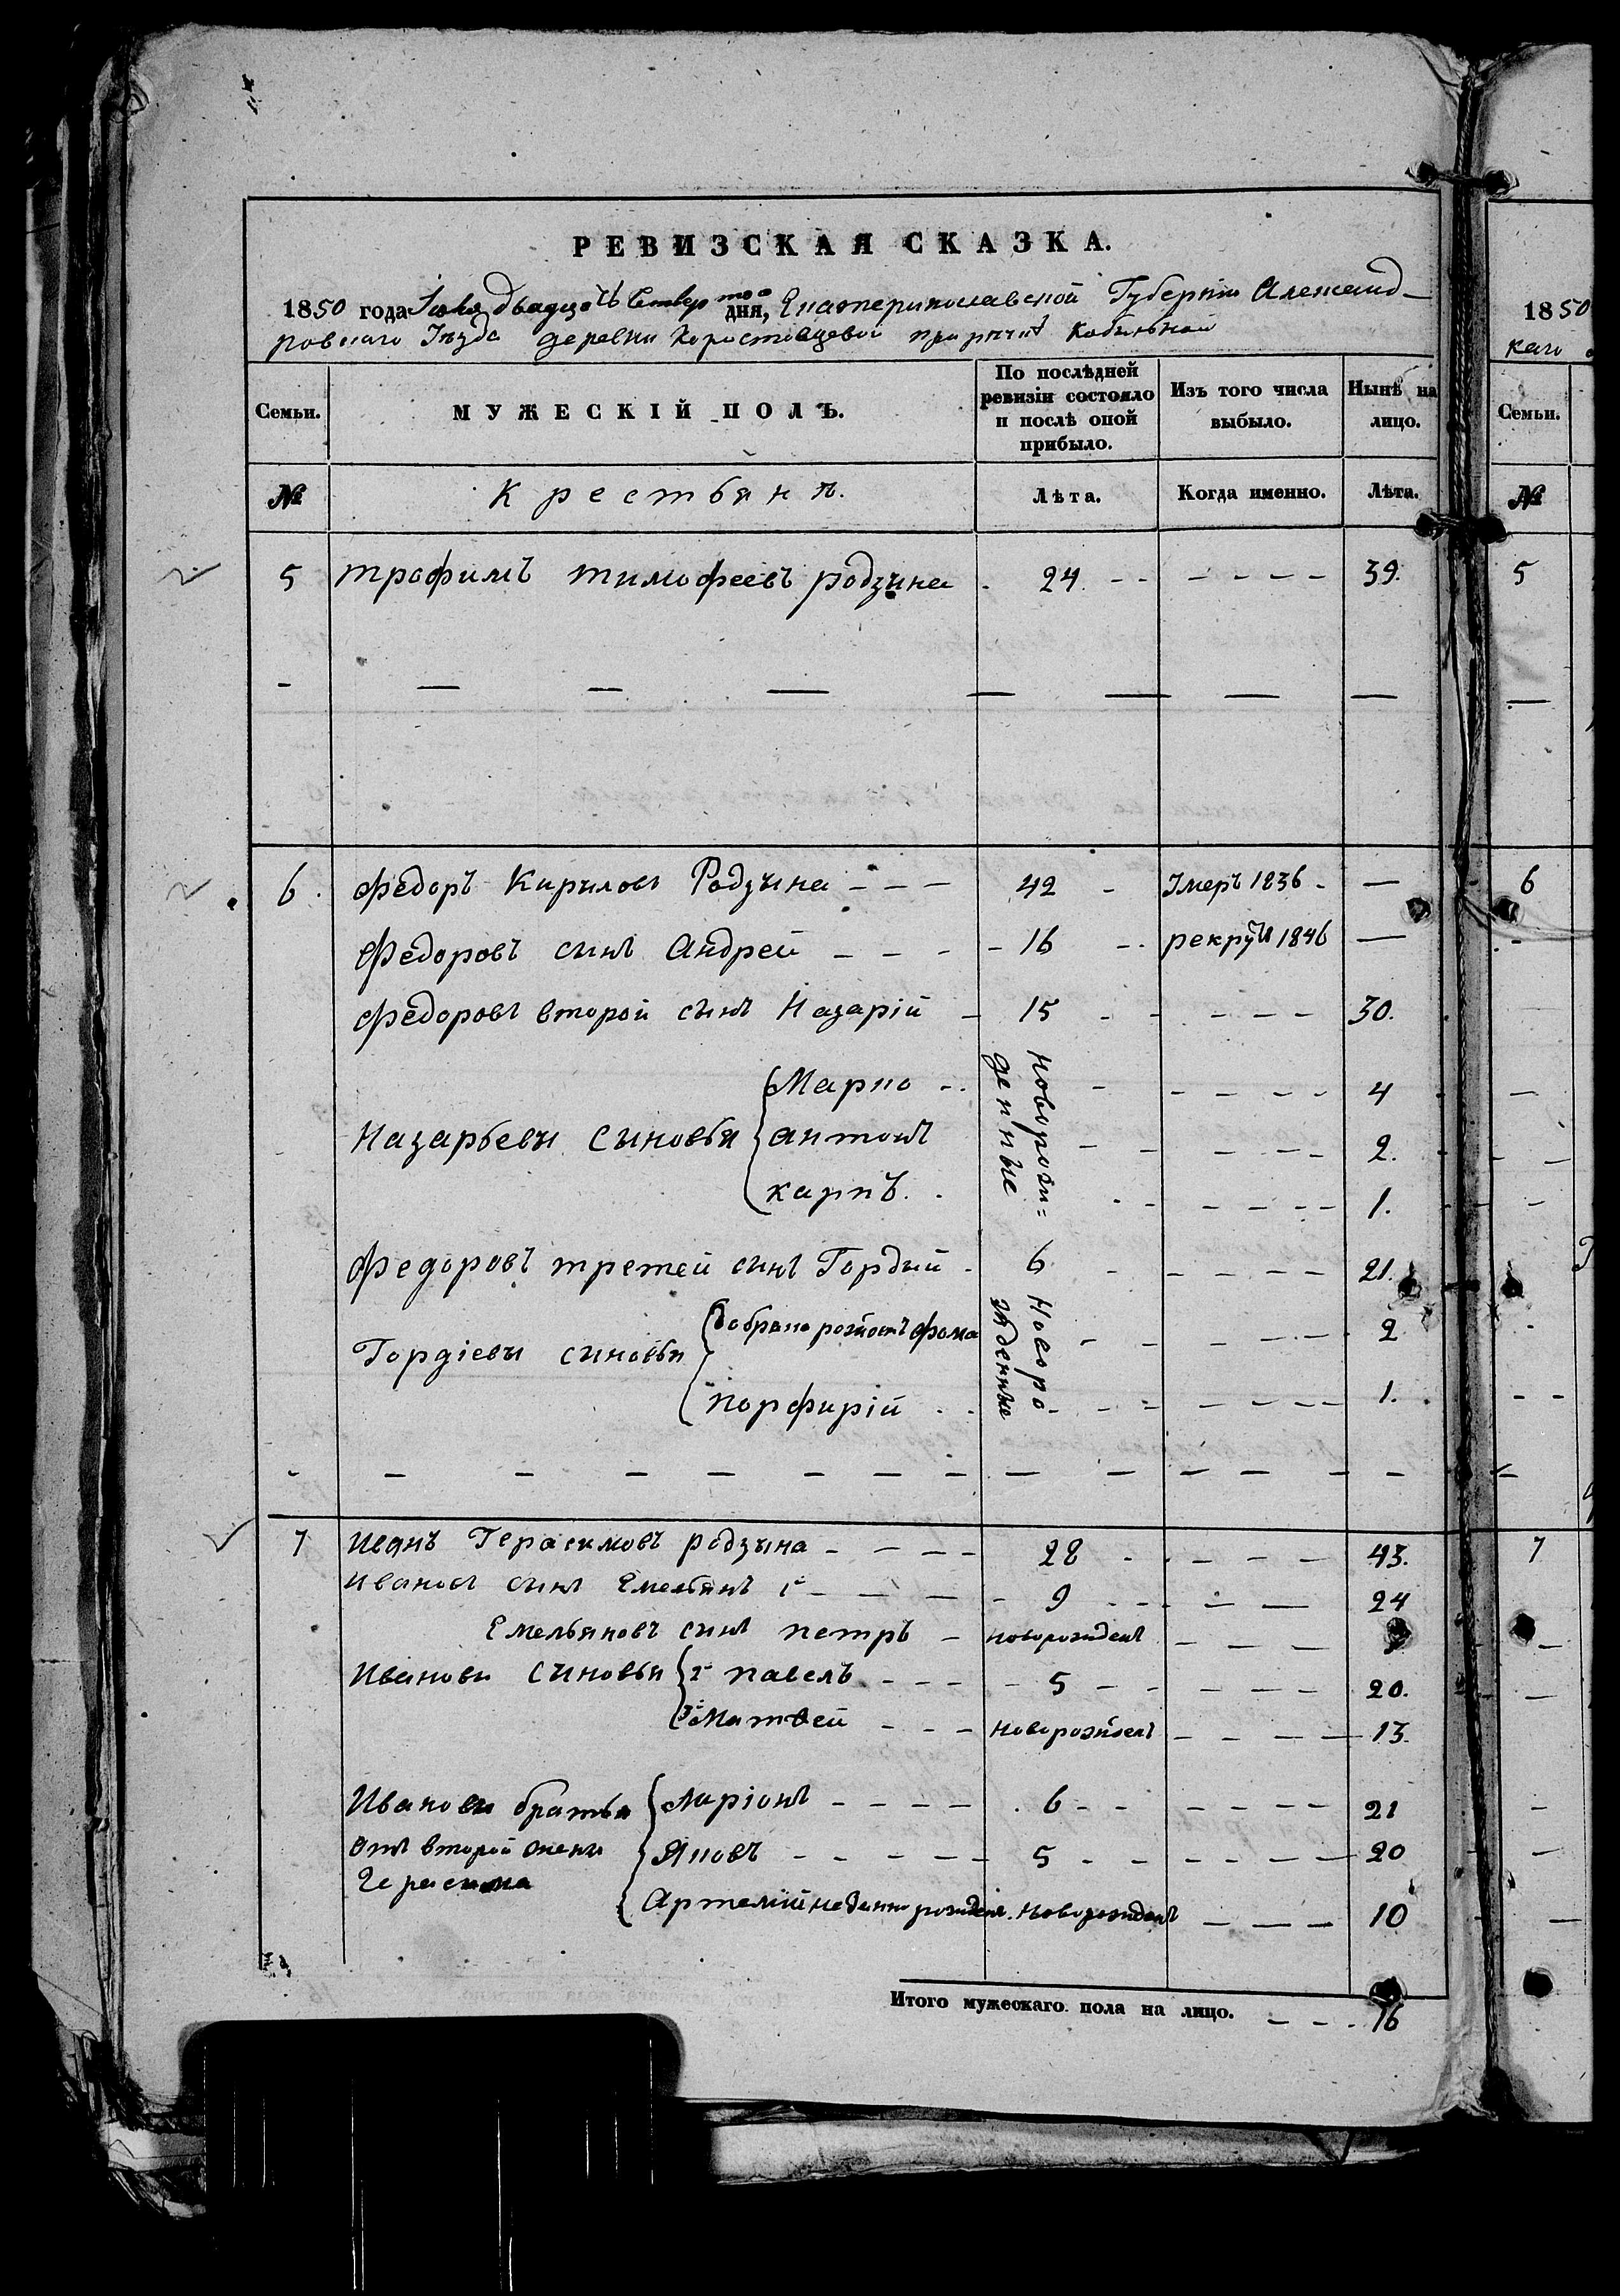 РЕВИЗСКАЯ СКАЗКА.
1850 года двадцать дня, Екатеринославской Губернии Александ-
ровскаго Уезда деревни Коростовцевой при речке Кобыльной
Семьи. МУЖЕСКІЙ ПОЛЪ. По послѣдней ревизіи состояло и послѣ оной прибыло. Изъ того числа выбыло. Нынѣ на лицо.
№ Крестьянъ. Лѣта. Когда именно. Лѣта.
5 Трофимъ Тимофеевъ родзина 24 39.
6 Федоръ Кириловъ Родзына 42 Умеръ 1836 —
Федоровъ сынъ Андрей 16 рекруты 1846 —
Федоровъ второй сынъ Назарій 15 30.
Назарьевы сыновья
Марко 4
антонъ 2.
карпъ. 1.
Новорож=
денные
Федоровъ третей сынъ Гордый 6 21.
Гордіевы сыновья
фома 2
Порфирій 1.
Новоро
жденные
7 Иванъ Герасимовъ родзына 28 43.
Ивановъ сынъ Емельянъ 1й 9 24
Емельяновъ сынъ петръ новорожденъ
Ивановы сыновья
2й павелъ 5 20.
3й Матвей новорожденъ 13.
Ивановы братья
отъ второй жены
Герасима
Ларіонъ 6 21
Яковъ 5 20
Артемій недавно рожденъ. новорожденъ 10
Итого мужескаго пола на лицо. 16
1850
каго
Семьи.
№
5
6
7